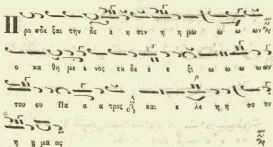 Π ρο σδε ξαι την δε ε η σιν η η μω ω ω ων
ο κα θη με ε νος εκ δε ε ε ξι ω ω ω ων
του ου Πα α α τρος και ε λε η η σο ον
η η μα ας